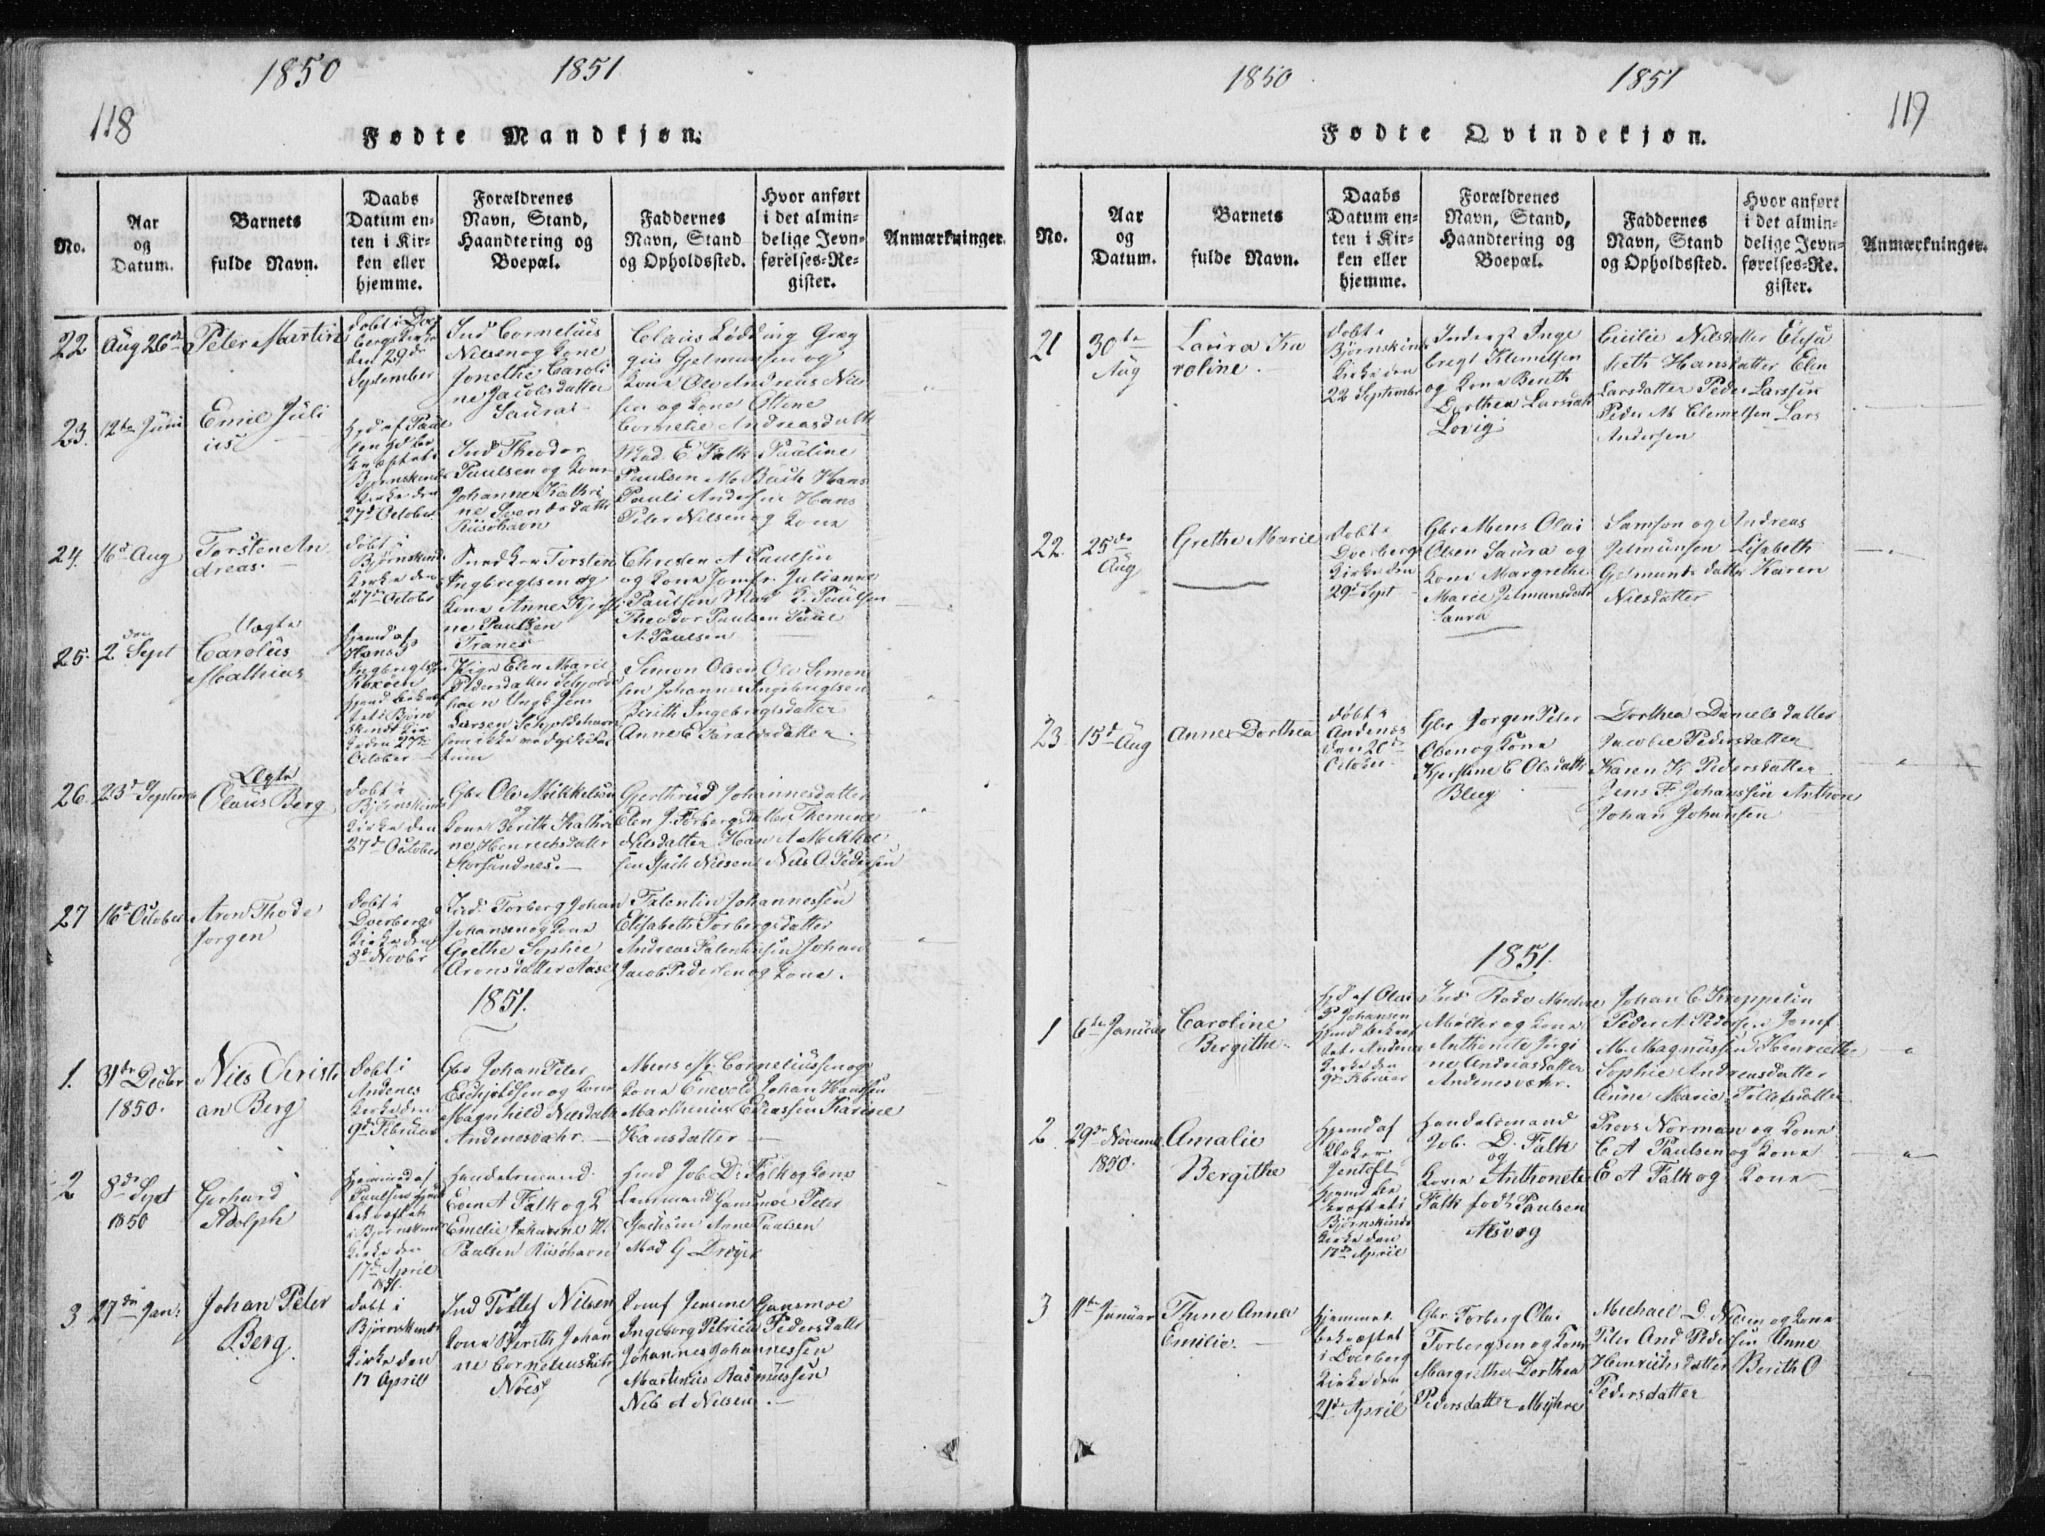 1850 1851
118
Fødte Mandkjøn.
No.
Aar og Datum.
Barnets fulde Navn.
Daabs Datum enten i Kirken eller hjemme.
Forældrenes Navn, Stand, Haandtering og Boepæl.
Faddernes Navn, Stand og Opholdssted.
Hvor anført i det almindelige Jevnførelses-Register.
Anmærkninger.
22
Aug 26de
Peter Martin
døbt i Dverbergs Kirke
den 29de
September
Ind Cornelius
Nielsen og Kone
Jonethe Caroline
Jacobsdatter
Saura
Claus Lødding Greg
gus Gjelmunsen og
Kone Ole Andreas Niel
sen og Kone Oline
Cornelie Andreasdatt
23.
12te Juni
Emil Juli
us
Ind Theodor
Paulsen og Kone
Johanne Kathri
ne Svendsdattr
Riisøhavn
27d October
Mad E Falk Pauline
Paulsen M Buch Hans
Pauli Andersen Hans
Peter Nilsen og Kone
24.
16d Aug
Torsten An
dreas.
døbt i
Bjørnskind
Kirke den
27de Octobr
Torsten
Ingbregtsen og
Kone Anne Kjersti
ne Paulsen
Tranes
Chresten A Paulsen
og Kone Jomfr. Julianne
Paulsen Mad T. Paulsen
Theodor Paulsen Paul
A. Paulsen
25.
2den Sept
Uægte
Carolus
Mathias
hjemd af
Hans
Ingbregts
October
Pige Elen Marie
Pedersdatter Skjolde
havn Ungk Jens
Larsen Skjoldehavn
Simon Olsen Ole Simon
sen Johannes Ingebregtsen
Berith Ingebregtsdatter
Anne E Taraldsdatter.
26.
23d Septembr
Ægte
Olaus Berg
døbt i
Bjørnskinds
Kirke den
27d October
Gbr Ole Mikkelsen
og
Kone Berith Kathri
ne Henrichsdatter
Storsandnes.
Gjerthrud Johannesdatter
Elen J. Torbergsdatter Themine
Nielsdatter Hans A Mikkel
sen Isach Nilsen Nils O. Pedersen
27
16d October
Aron Thode
Jørgen
døbt i
Dverbergs
Kirke den
3d Novbr
Ind. Torberg Johan
Johansen og Kone
Grethe Sophie
Aronsdatter Aase
Falentin Johannessen
Elisabeth Torbergsdatter
Andreas Falentinsen Johan
Jacob Pedersen og Kone.
1851.
1.
31te Decbr
1850.
Nils Christi
an Berg
døbt i
Andenes
Kirke den
9d Februar
Gbr Johan Peter
Eschjeldsen og Kone
Magnhild Nilsdattr
Andenesvær.
Mens M. Corneliussen og
Kone Enevold Johan Hansen
Marthinus Eliassen Karine
Hansdatter
2
8de Sept
1850
Gerhard
Adolph
hjemmed af
Paulsen
Bjørnskinds
Kirke den
17d April
1851.
Handelsmand
Even A Falk og K
Emelie Johanne H.
Paulsen Riisøhavn
Hmd Job. D. Falk og Kone
Lensmand Gansmoe Peter
Isachsen Anne Paulsen
Mad G Dreyer
3
27de Jan:
Johan Peter
Berg.
døbt i
Bjørnskinds
Kirke den
17 April
Ind Tollef Nilsen
og
Kone Berith Johan
ne Corneliusdatr
Nøis
Jomf Jensine Gansmoe
Ingeborg Petrica Pedersdattr
Johannes Johannessen
Martinus Rasmussen
Nils A Nilsen.
1850 1851
119
Fødte Qvindekjøn.
No.
Aar og Datum.
Barnets fulde Navn.
Daabs Datum enten i Kirken eller hjemme.
Forældrenes Navn, Stand, Haandtering og Boepæl.
Faddernes Navn, Stand og Opholdssted.
Hvor anført i det almindelige Jevnførelses-Re. gister.
Anmærkninger.
21
30te
Aug
Laura Ka
roline.
døbt i
Bjørnskinds
Kirke den
22 Septembr
Inderst Inge
bregt Klemetsen
og Kone Benth
Dorthea Larsdatr
Lovig
Cecilie Nilsdatter Elisa
beth Hansdatter Elen
Larsdatter Peder Larssen
Peder M Clemetsen Lars
Andersen
22.
25de
Aug
Grethe Marie
døbt i
Dverbergs
Kirke den
29d Sept
Gbr Mens Olai
Olsen Saura og
Kone Margrethe
Marie Jelmunsdatr
Saura
Samson og Andreas
Jelmunsen Lisabeth
Gjelmundsdatter Karen
Nielsdatter
23.
15d Aug
Anne Dorthea
døbt i
Andenæs
den 20de
October
Gbr Jørgen Peter
Olsen og Kone
Kjerstine C Olsdattr
Bleg
Dorthea Danielsdatter
Jacobie Pedersdatter
Karen K Pedersdatter
Jens F. Johanssen Anthon
Johan Johansen
1851.
1
6te Januar
Caroline
Bergithe
hjd af Olai
P. Johansen
Kirke den
9d Februar
Møller og Kone
Anthonete Jørgi
ne Andreasdatter
Andenesvær.
Johan C. Kroppelin
Peder A. Pedersen Jomf
M. Magnussen Henriette
Sophie Andreasdatter
Anne Marie Tollefsdatter
2
29de Novembr
1850.
Amalie
Bergithe
hjemd af
Kloker
Jentoft
hjemd be
kræftet i
Bjørnskinds
Kirke den
17de April
Handelsmand
Job. D. Falk
og
Kone Anthonete
Falk født Paulsen
Alsvog
Provs Norman og Kone
C A Paulsen og Kone
E A Falk og Kone
3
11te Januar
Thine Anne
Emilie.
hjemmed.
bekræftet
i Dverberg
Kirke den
21d April
Gbr Torberg Olai
Torbergsen og Kone
Margrethe Dorthea
Pedersdatter Myhre
Michael D. Nilsen og Kone
Peter And Pedersen Anne
Henrichsdatter Berith O
Pedersdatter